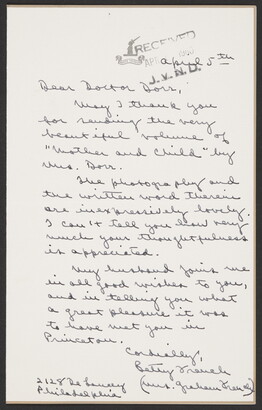 RECEIVED
April 5th
J. V. N. D.
Dear Doctor Dorr,
May I thank you
for sending the very
beautiful volume of
"Mother and Child" by
Mrs. Dorr.
The photography and
the written word therein
are inexpressively lovely.
I can't tell you how very
much your thoughtfulness
is appreciated.
My husband joins me
in all good wishes to you,
and in telling you what
a great pleasure it was
to have met you in
Princeton.
Cordially,
Betty French
(Mrs. Graham French)
2128 De Lancey
Philadelphia